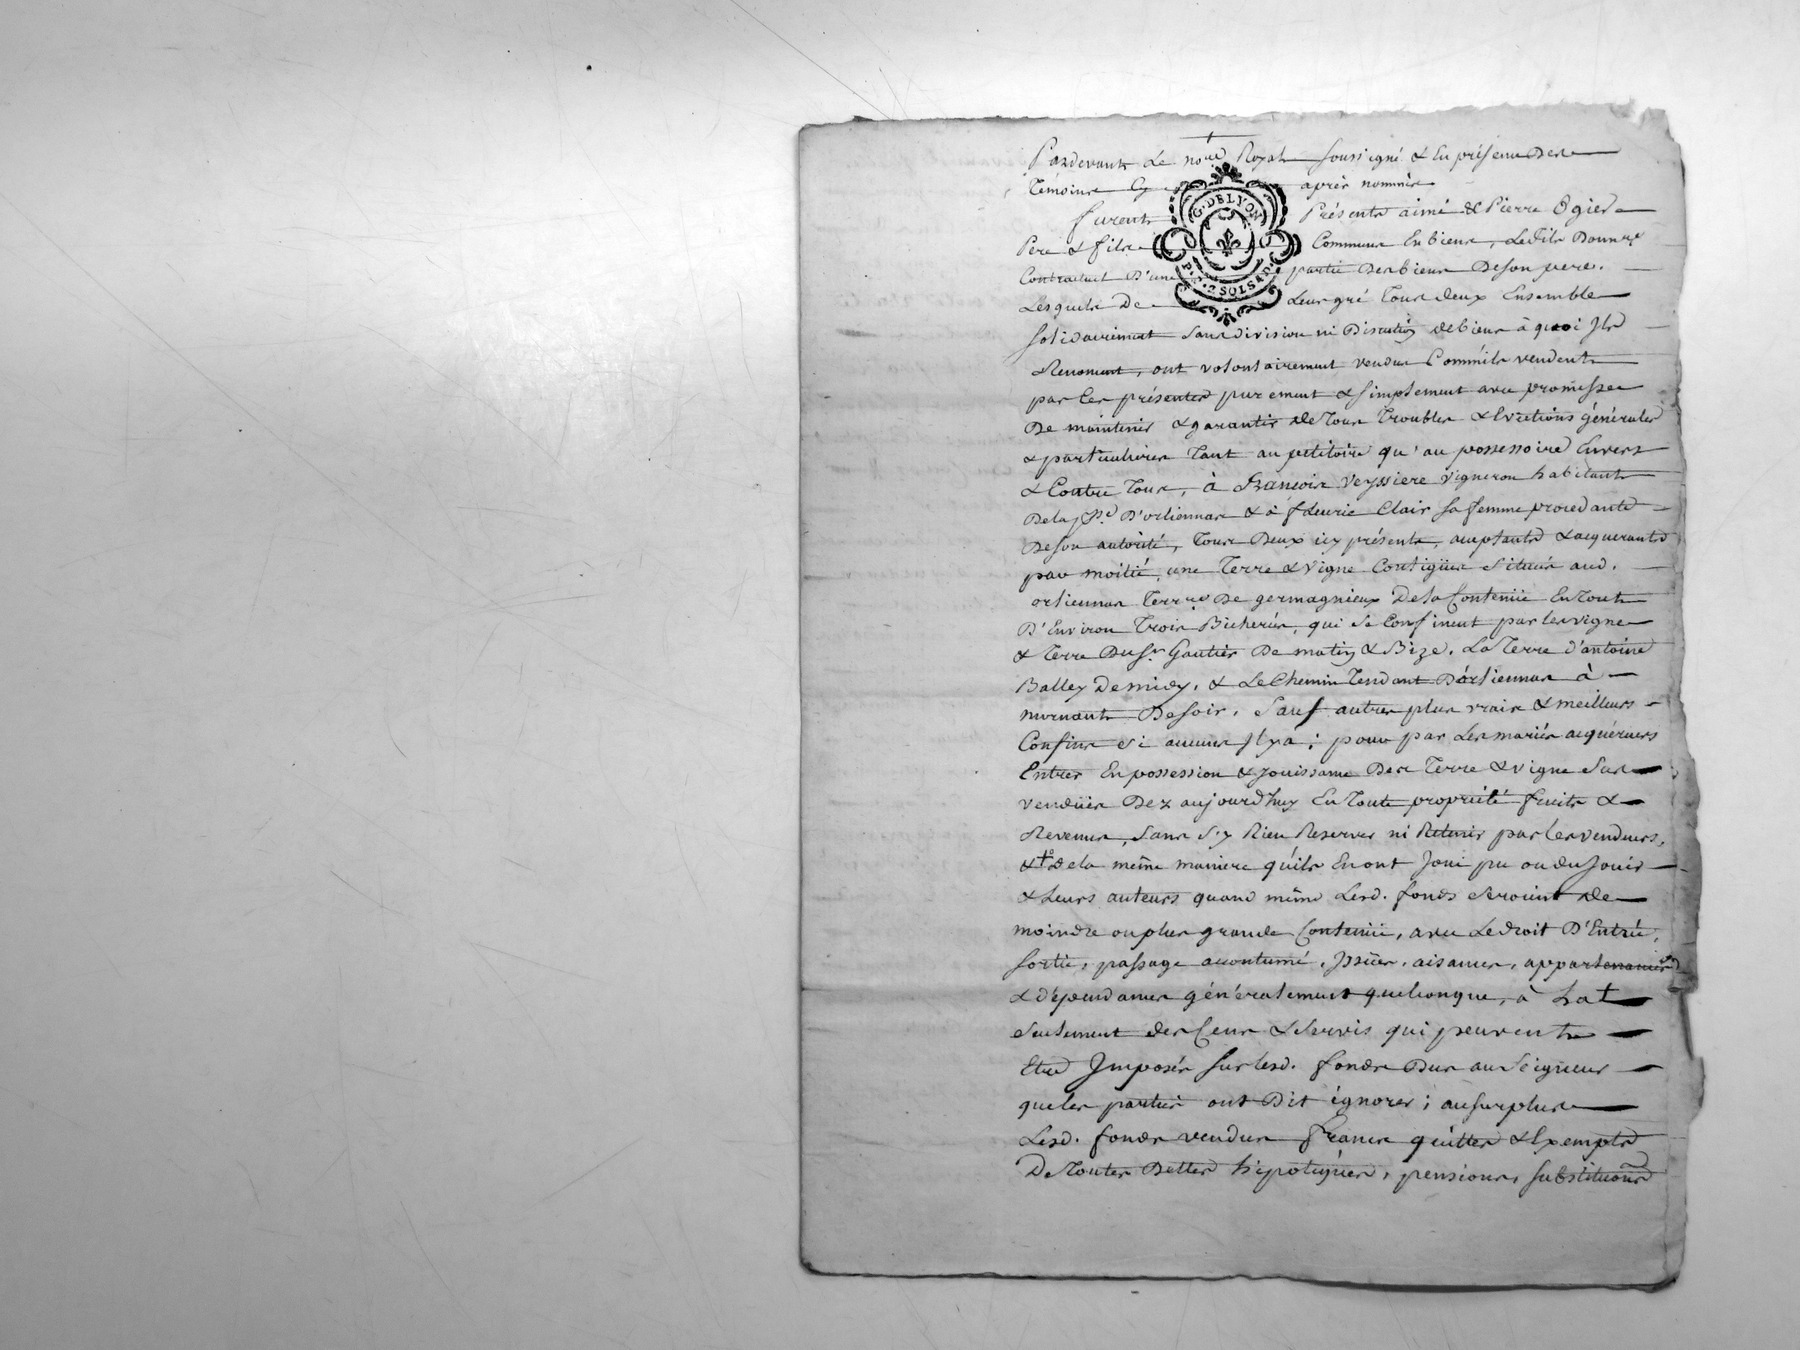 Pardevant Le no.re Royal soussigné & En présence Des
Témoins Cy après nommés
furent Présents aimé & Pierre Ogier
Pere & fils Communs En biens, Le Fils Donn.re
Contractuel D'une partie Des biens De son pere.
Lesquels De Leur gré Tous deux Ensemble
solidairement sans division ni Discution de biens à quoi Ils
Renoncent, ont volontairement vendus Comm'ils vendent
par Ces présentes purement & simplement avec promesse
De maintenir & garantir de Tous Troubles & Evictions générales
& particulieres Tant au petitoire qu'au possessoire Envers
& Contre Tous, à François Veyssiere Vigneron habitant
De la p.sse D'orliennas & à fleurie Clair sa femme procedante
De son autorité, Tous Deux icy présents, acceptants & acquerants
par moitié, une Terre & Vigne Contigües Situés aud.
orliennas Terr.re De germagnieux De la Contenüe En Tout
D'Environ Trois Bicherées, qui se Confinent par les vigne
& Terre Du S.r Gautier De matin & Bize. La Terre d'antoine
Balley De midy, & Le Chemin Tendant D'orliennas à
mornant De soir. Sauf autres plus vrais & meilleurs
Confins si aucuns Il y a; pour par Les mariés acquéreurs
Entrer En possession & jouissance Des Terre & Vigne Sus
vendües Dez aujourd'huy En Toute propriété fruits &
Revenus, Sans s'y Rien Reserver ni Retenir par les vendeurs,
& de la même maniere qu'ils En ont Joui pu ou du Jouir
& Leurs auteurs quand même Lesd. fonds seroient De
moindre ou plus grande Contenüe, avec Le droit D'Entrée,
sortie, passage accoutumé, Issües, aisances, appartenances
& dépendances généralement quelconque, à La †
seulement des Cens & Servis qui peuvent
Etre Imposés sur lesd. fonds Dus au Seigneur
que les parties ont Dit ignorer; au surplus
Lesd. fonds vendus francs quittes & Exempts
De Toutes Dettes hipotéques, pensions, substitutions
G. DE LYON
P. P. 2 SOLS 8 D.